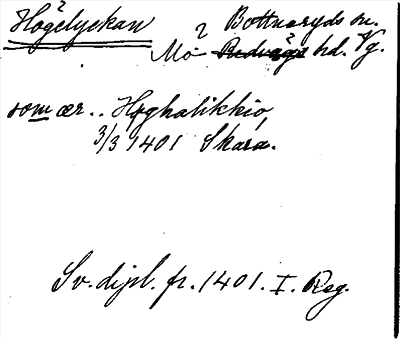 Hogelyckan
? Bottnaryds sn.
Mo Redvägs hd. Vg.
som ær .. Høghalikkio,
3/3 1401 Skara.
Sv. dipl. fr. 1401. I. Reg.